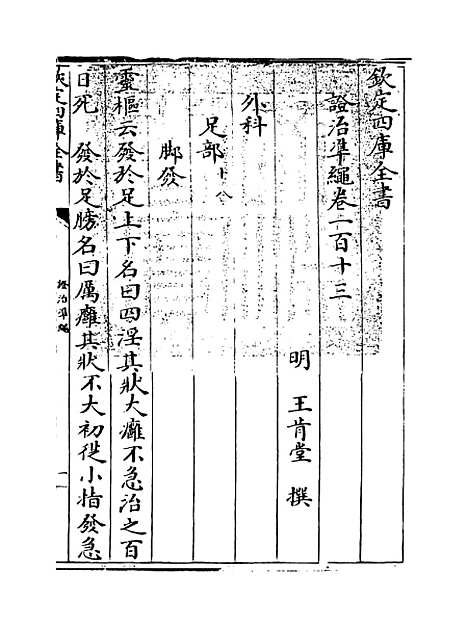 欽定四庫全書
證治準繩卷一百十三
明 王肯堂 撰
外科
足部十八
脚發
靈樞云發於足上下名曰四淫其狀大癰不急治之百
日死 發於足膀名曰厲癰其狀不大初從小指發急
欽定四庫全書
證治準繩
一